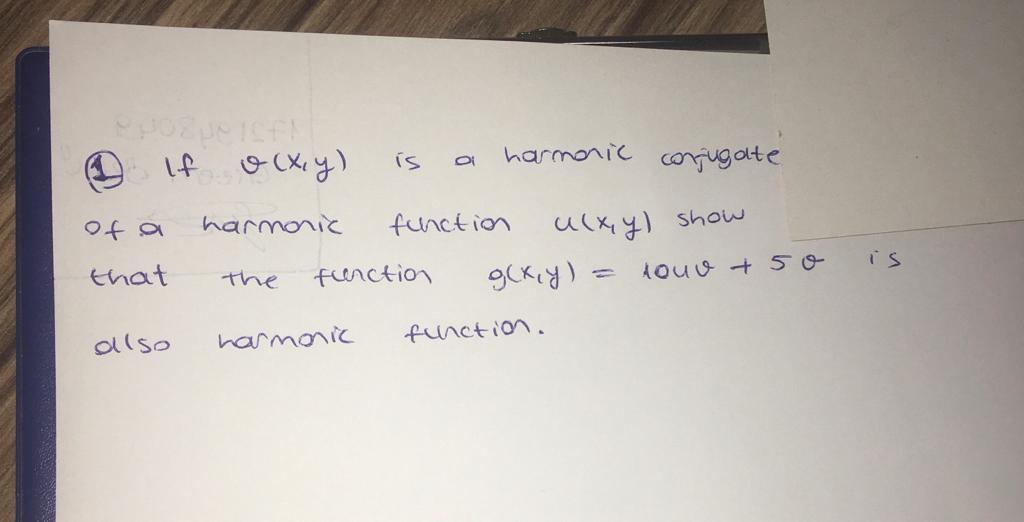 ① If v(x,y) is a harmonic conjugate
of a harmonic function u(x,y) show
that the function g(x,y) = 10uv + 5v is
also harmonic function.